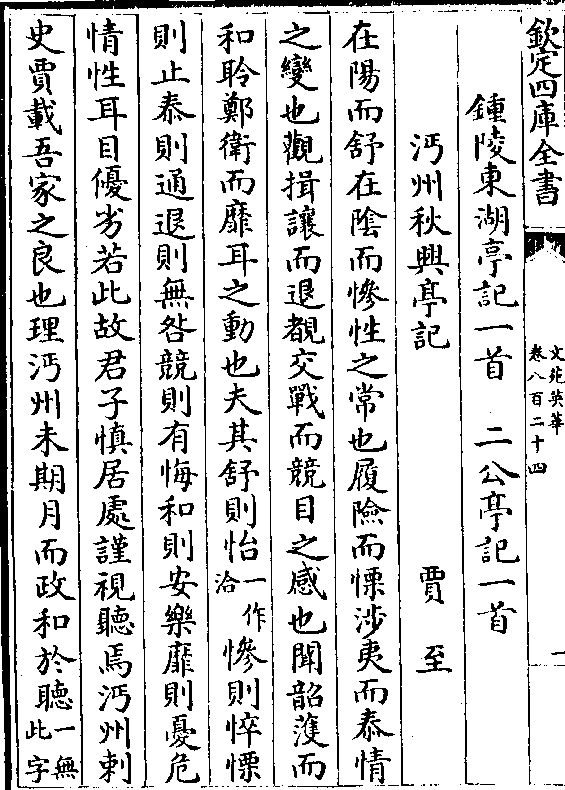 欽定四庫全書
文苑英華
卷八百二十四
一
鍾陵東湖亭記一首　二公亭記一首
沔州秋興亭記　賈至
在陽而舒在陰而慘性之常也履險而慄涉夷而泰情
之變也觀揖讓而退覩交戰而競目之感也聞韶頀而
和聆鄭衛而靡耳之動也夫其舒則怡一作洽慘則悴慄
則止泰則通退則無咎競則有悔和則安樂靡則憂危
情性耳目優劣若此故君子慎居處謹視聽焉沔州刺
史賈載吾家之良也理沔州未期月而政和於聽一無此字